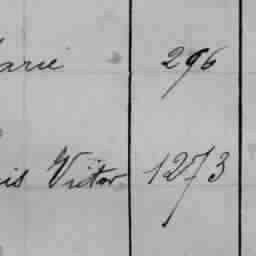 arie 296
is Victor 1273